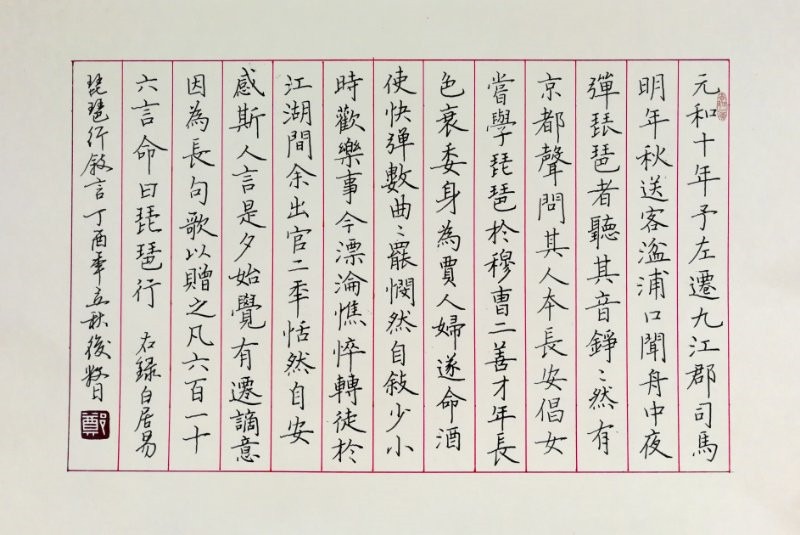 元和十年予左遷九江郡司馬
明年秋送客湓浦口聞舟中夜
彈琵琶者聽其音錚〻然有
京都聲問其人本長安倡女
嘗學琵琶於穆曹二善才年長
色衰委身為賈人婦遂命酒
使快弹數曲〻罷憫然自敍少小
時歡樂事今漂淪憔悴轉徒於
江湖間余出官二年恬然自安
感斯人言是夕始覺有遷謫意
因為長句歌以贈之凡六百一十
六言命曰琵琶行 右録白居易
琵琶行敘言丁酉年立秋後数日
鄭